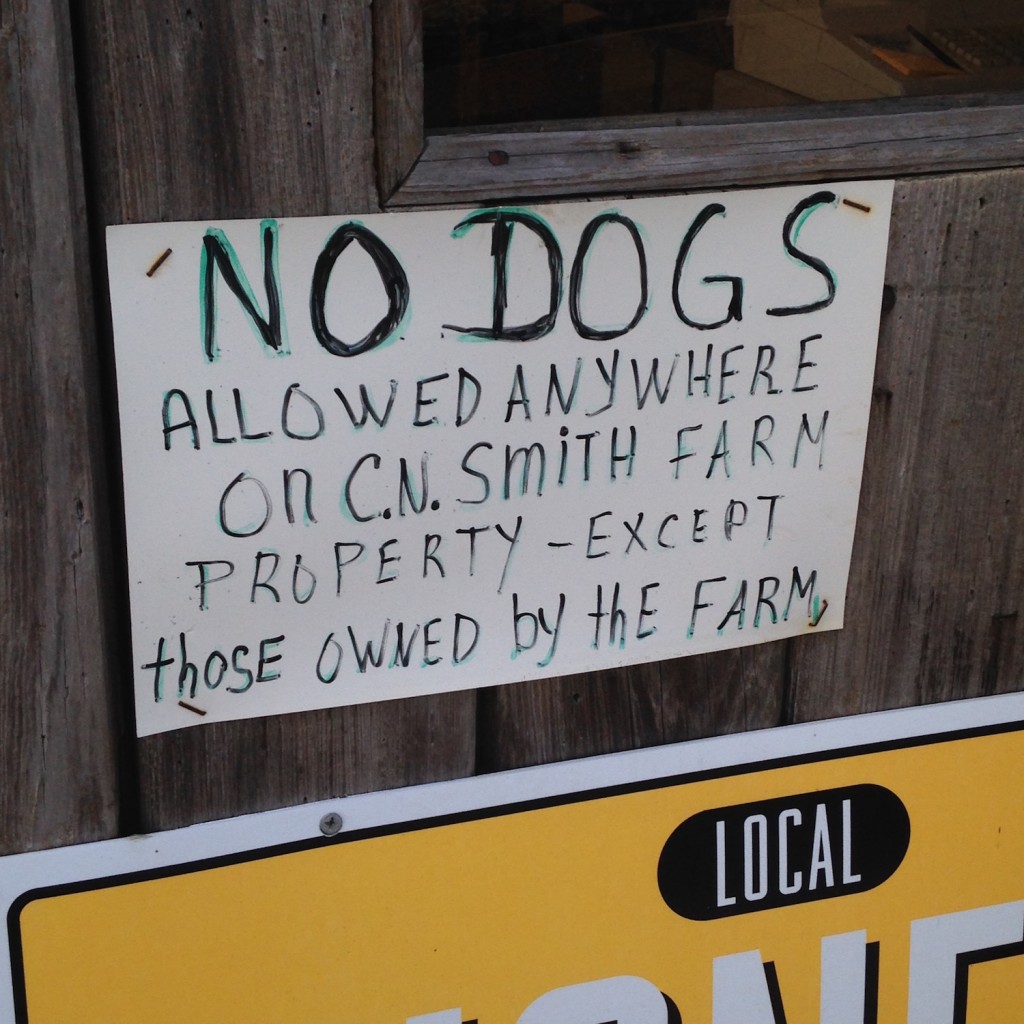 NO DOGS
ALLOWED ANYWHERE
On C.N. SmiTH FARM
PROPERTY - EXCEPT
thoSE OWNED by thE FARM
LOCAL